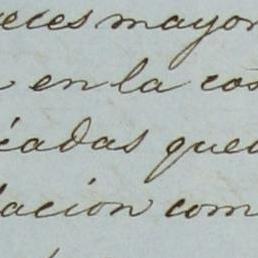 veces mayor
en la cos
icadas que
lacion com